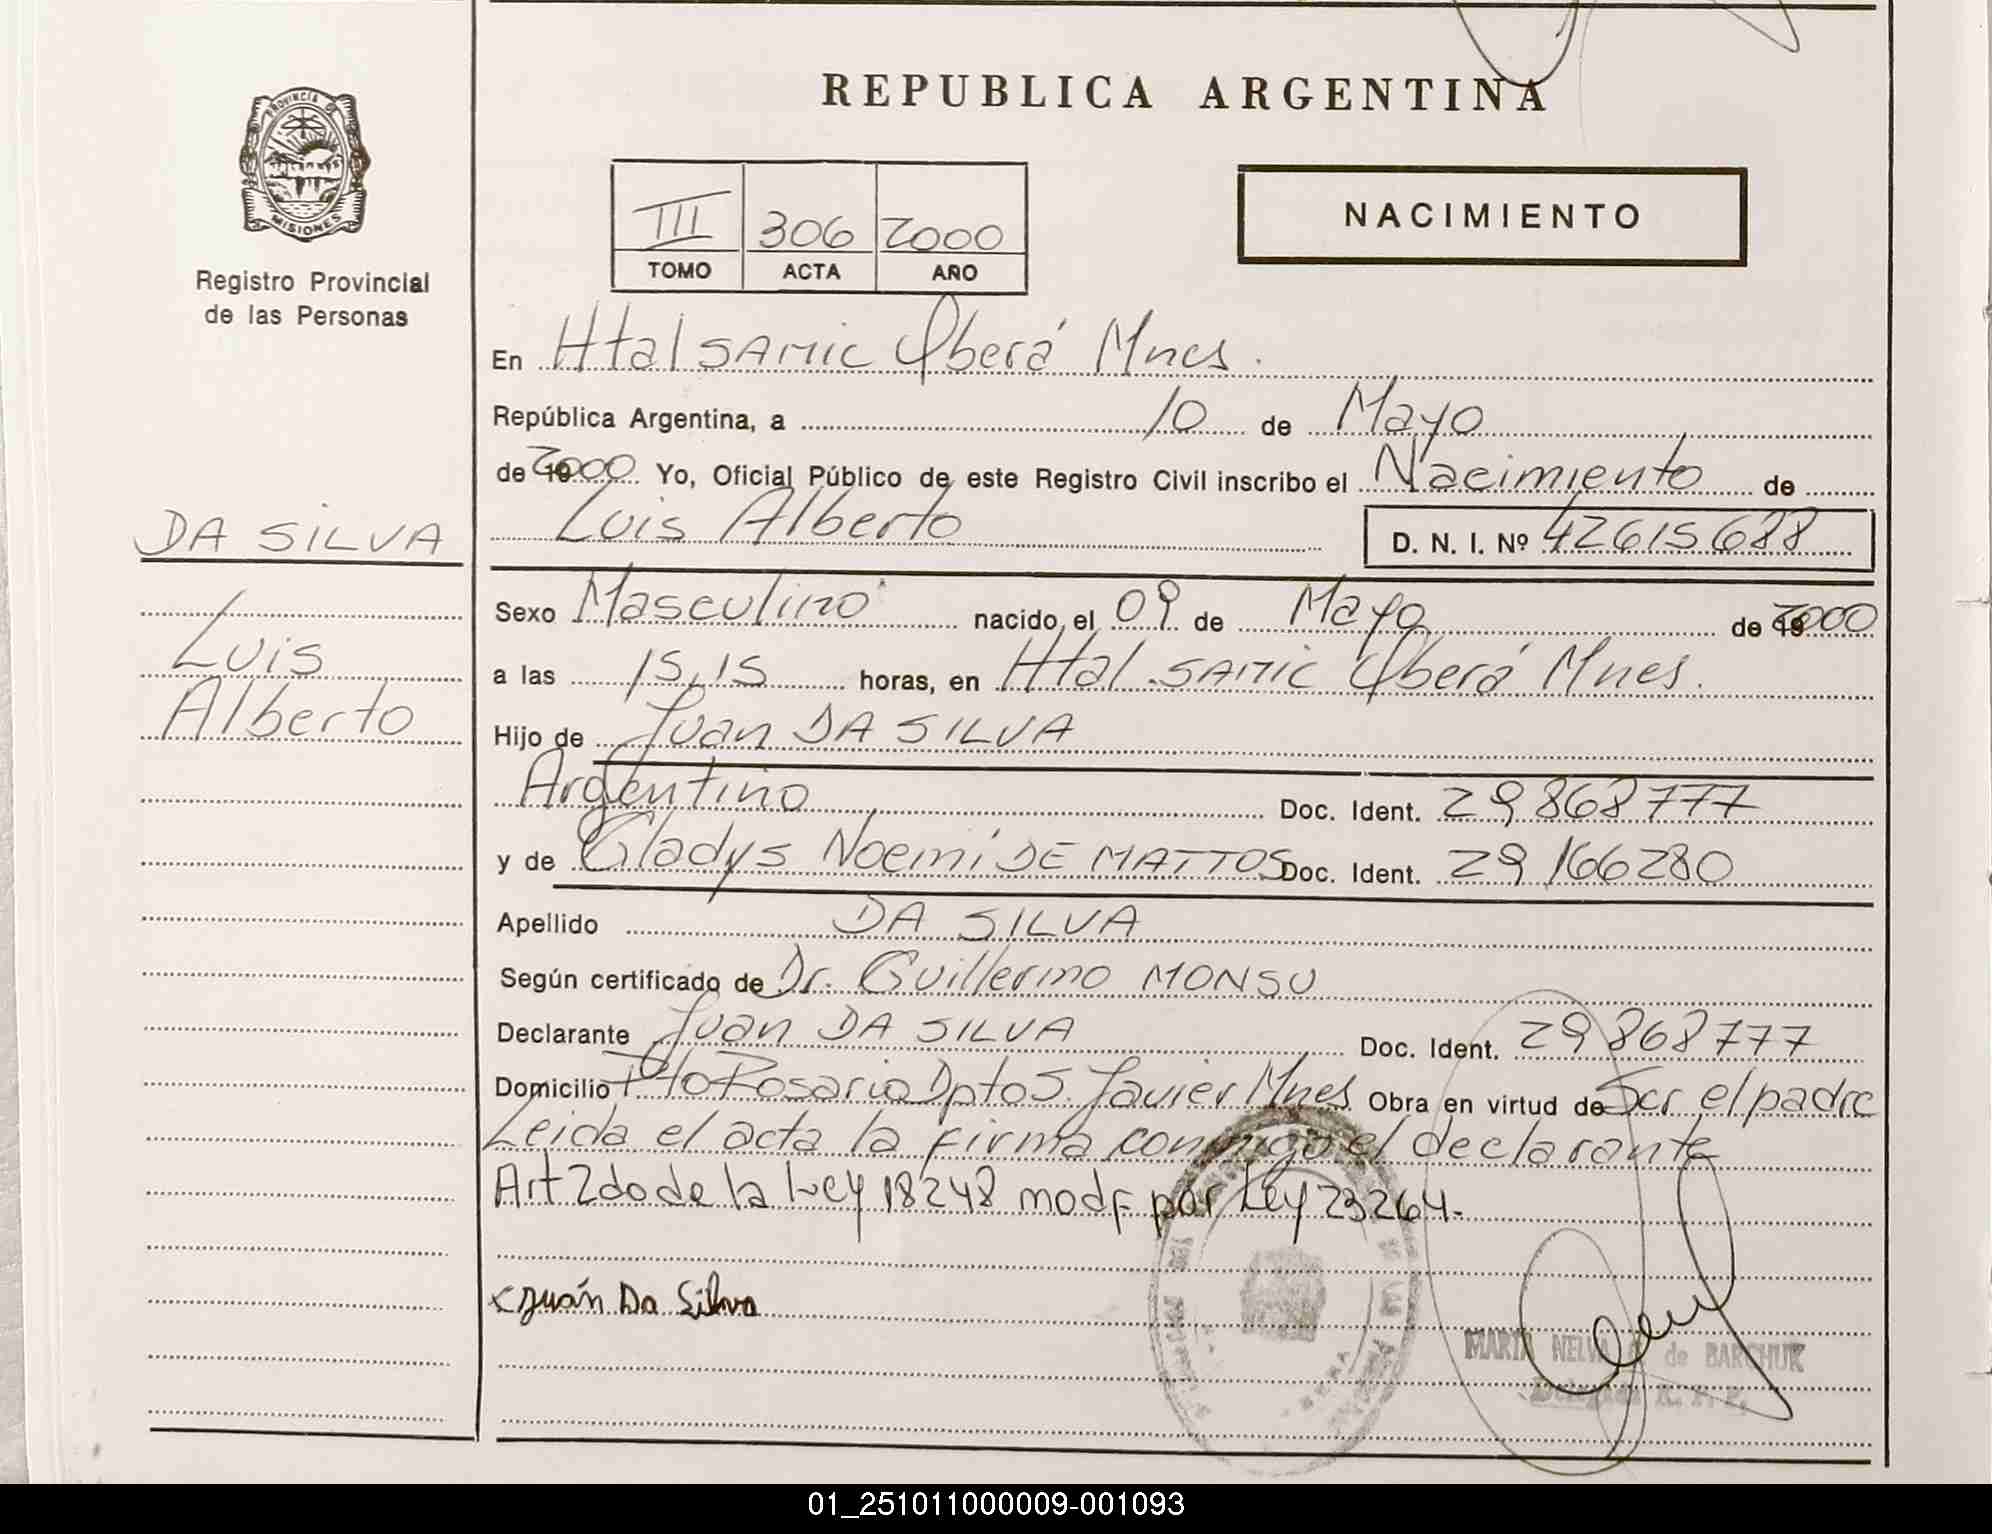 REPUBLICA ARGENTINA
PROVINCIA DE
MISIONES
Registro Provincial
de las Personas
III 306 2000
TOMO ACTA AÑO
NACIMIENTO
En Htal SAMIC Oberá Mnes.
República Argentina, a 10 de Mayo
de 2000 Yo, Oficial Público de este Registro Civil inscribo el Nacimiento de
Luis Alberto D. N. I. Nº 42615688
DA SILVA
Luis
Alberto
Sexo Masculino nacido el 09 de Mayo de 2000
a las 15,15 horas, en Htal. SAMIC Oberá Mnes.
Hijo de Juan DA SILVA
Argentino Doc. Ident. 29868777
y de Gladys Noemí DE MATTOS Doc. Ident. 29166280
Apellido DA SILVA
Según certificado de Dr. Guillermo MONSU
Declarante Juan DA SILVA Doc. Ident. 29868777
Domicilio Pto Rosario Dpto S. Javier Mnes Obra en virtud de Ser el padre
Leida el acta la firma conmigo el declarante
Art 2do de la Ley 18248 modf por Ley 23264.
x Juán Da Silva
MARIA NELVA de BARCHUK
01_251011000009-001093